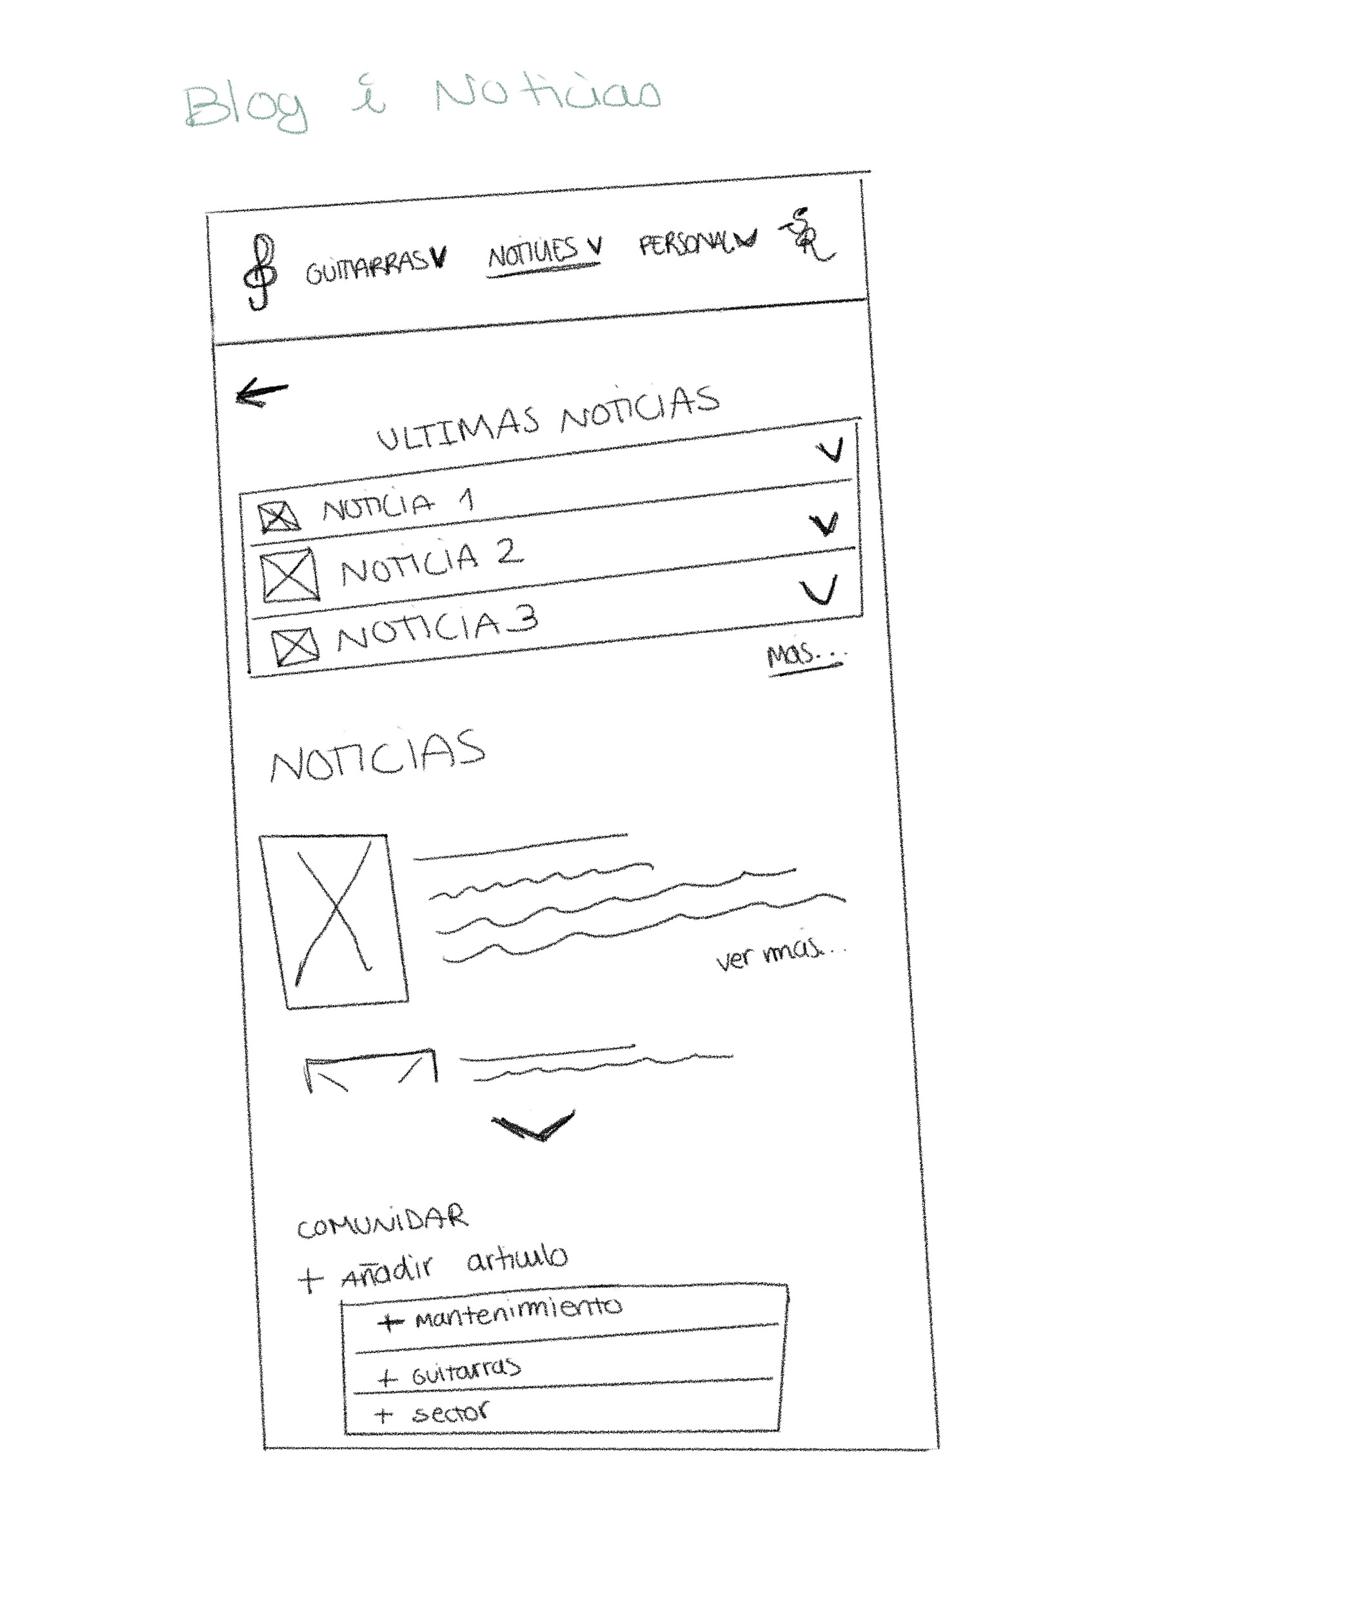 Blog i Noticias
GUITARRAS NOTICIES PERSONAL SR
ULTIMAS NOTICIAS
NOTICIA 1
NOTICIA 2
NOTICIA 3
Mas...
NOTICIAS
ver mas...
COMUNIDAR
+ Añadir articulo
+ Mantenimiento
+ Guitarras
+ sector